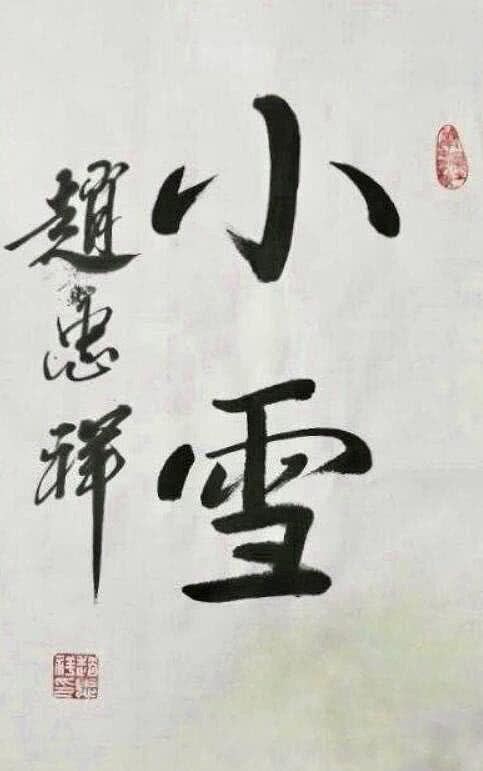 小雪
趙忠祥